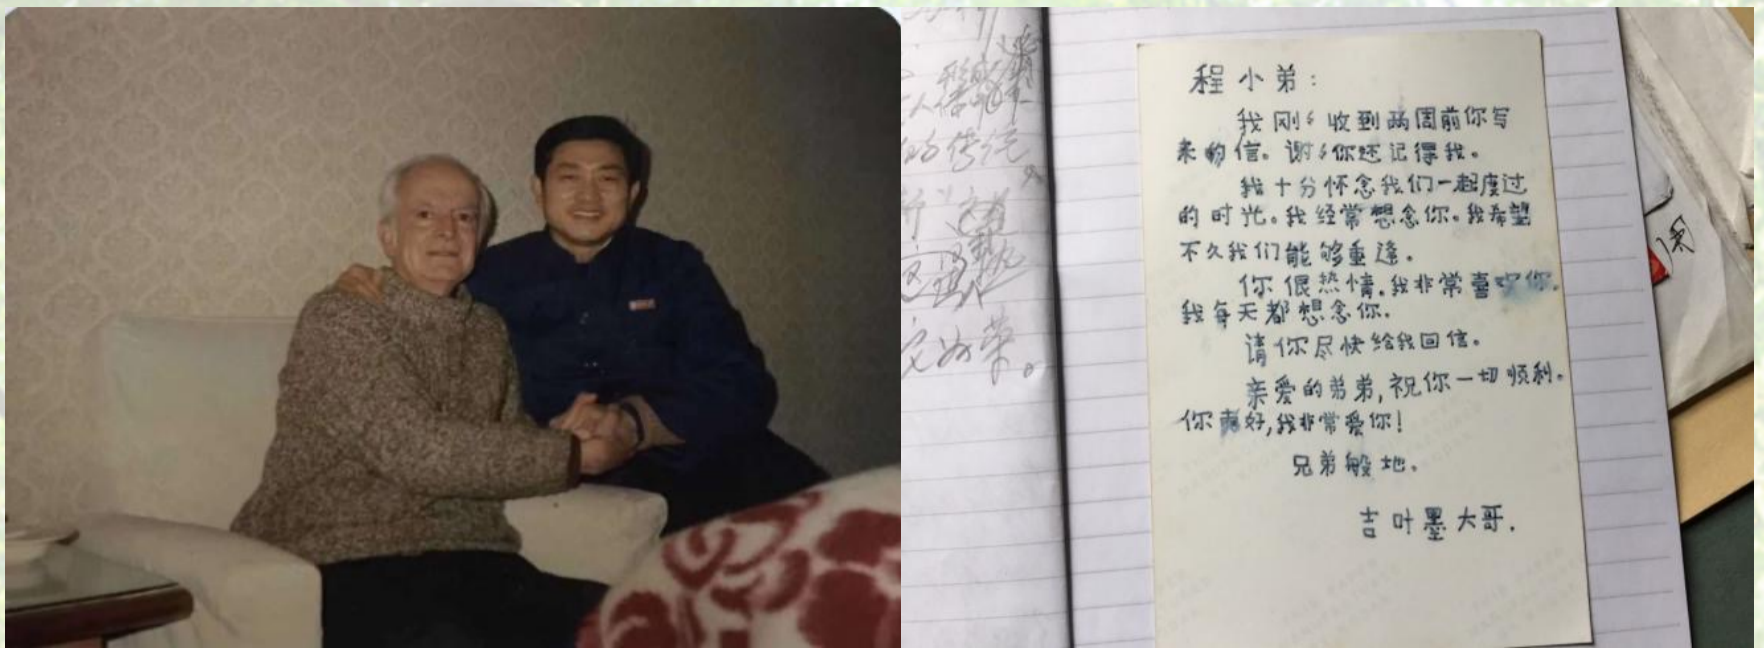 程小弟：
我刚々收到两周前你写
来的信。谢々你还记得我。
我十分怀念我们一起度过
的时光。我经常想念你。我希望
不久我们能够重逢。
你很热情。我非常喜欢你。
我每天都想念你。
请你尽快给我回信。
亲爱的弟弟,祝你一切顺利。
你真好,我非常爱你!
兄弟般地。
吉叶墨大哥.
的传统